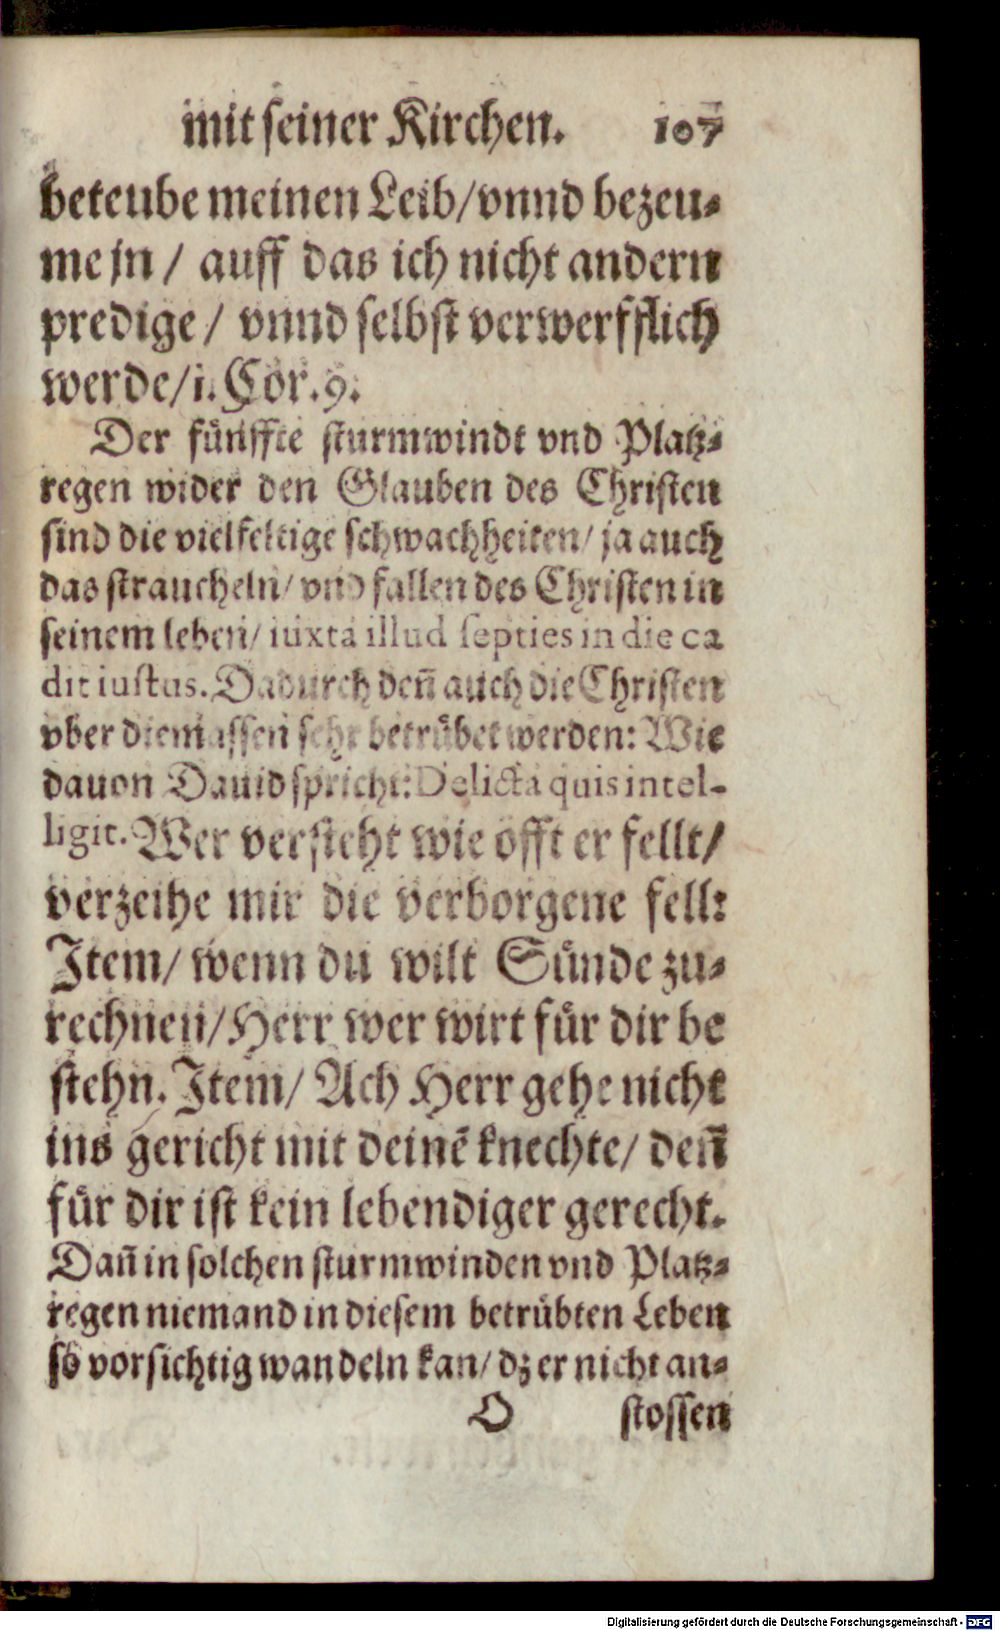 mit seiner Kirchen. 107
beteube meinen Leib/vnnd bezeu-
me jn / auff das ich nicht andern
predige / vnnd selbst verwerfflich
werde/1. Cor. 9.
Der fünffte sturmwindt vnd Platz-
regen wider den Glauben des Christen
sind die vielfeltige schwachheiten/ ja auch
das straucheln/ vnd fallen des Christen in
seinem leben/ iuxta illud septies in die ca
dit iustus. Dadurch deñ auch die Christen
vber diemassen sehr betrübet werden: Wie
dauon Dauid spricht: Delicta quis intel-
ligit. Wer versteht wie offt er fellt/
verzeihe mir die verborgene fell:
Item/ wenn du wilt Sünde zu-
rechnen/Herr wer wirt für dir be
stehn. Item/ Ach Herr gehe nicht
ins gericht mit deinē knechte/ deñ
für dir ist kein lebendiger gerecht.
Dañ in solchen sturmwinden vnd Platz-
regen niemand in diesem betrübten Leben
so vorsichtig wandeln kan/ dz er nicht an-
O stossen
Digitalisierung gefördert durch die Deutsche Forschungsgemeinschaft - DFG